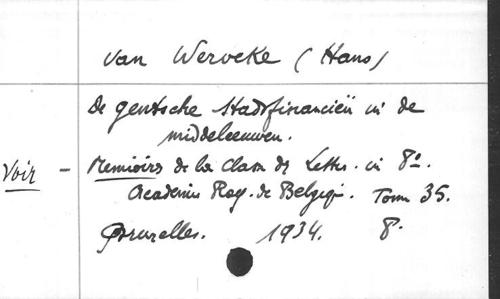 van Werveke (Hans)
De gentsche stadsfinanciën in de
middeleeuwen.
Voir - Memoires de la Classe des Lettres. in 8º.
Academie Roy. de Belgique. Tome 35.
Bruxelles. 1934. 8.